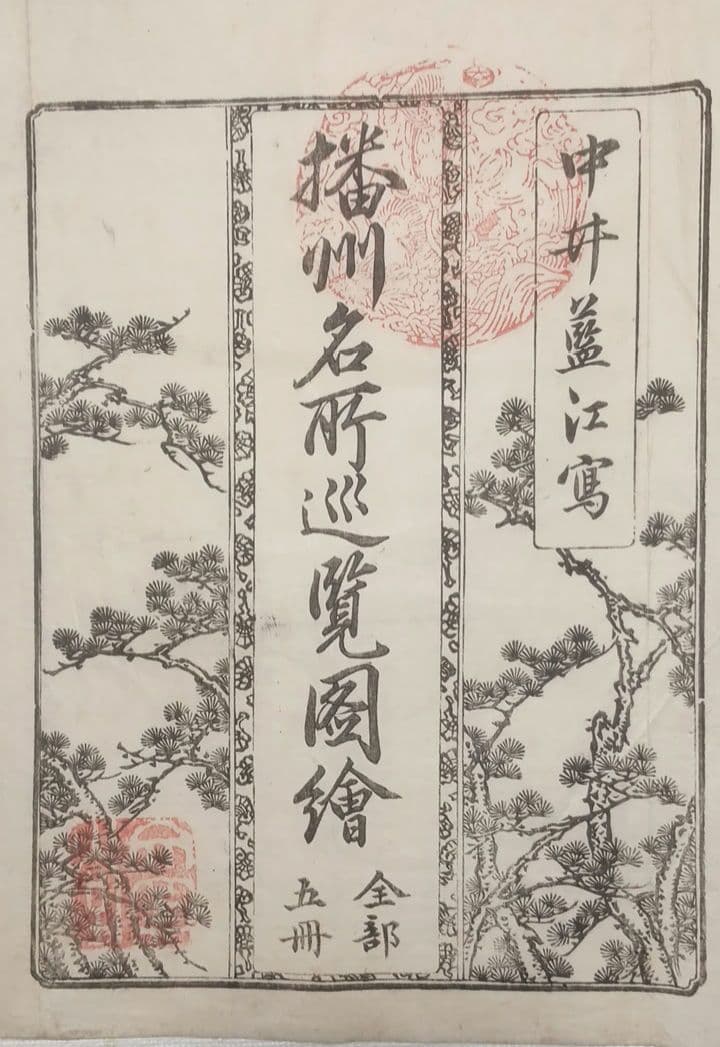 中井藍江寫
播州名所巡覧図繪
全部
五冊